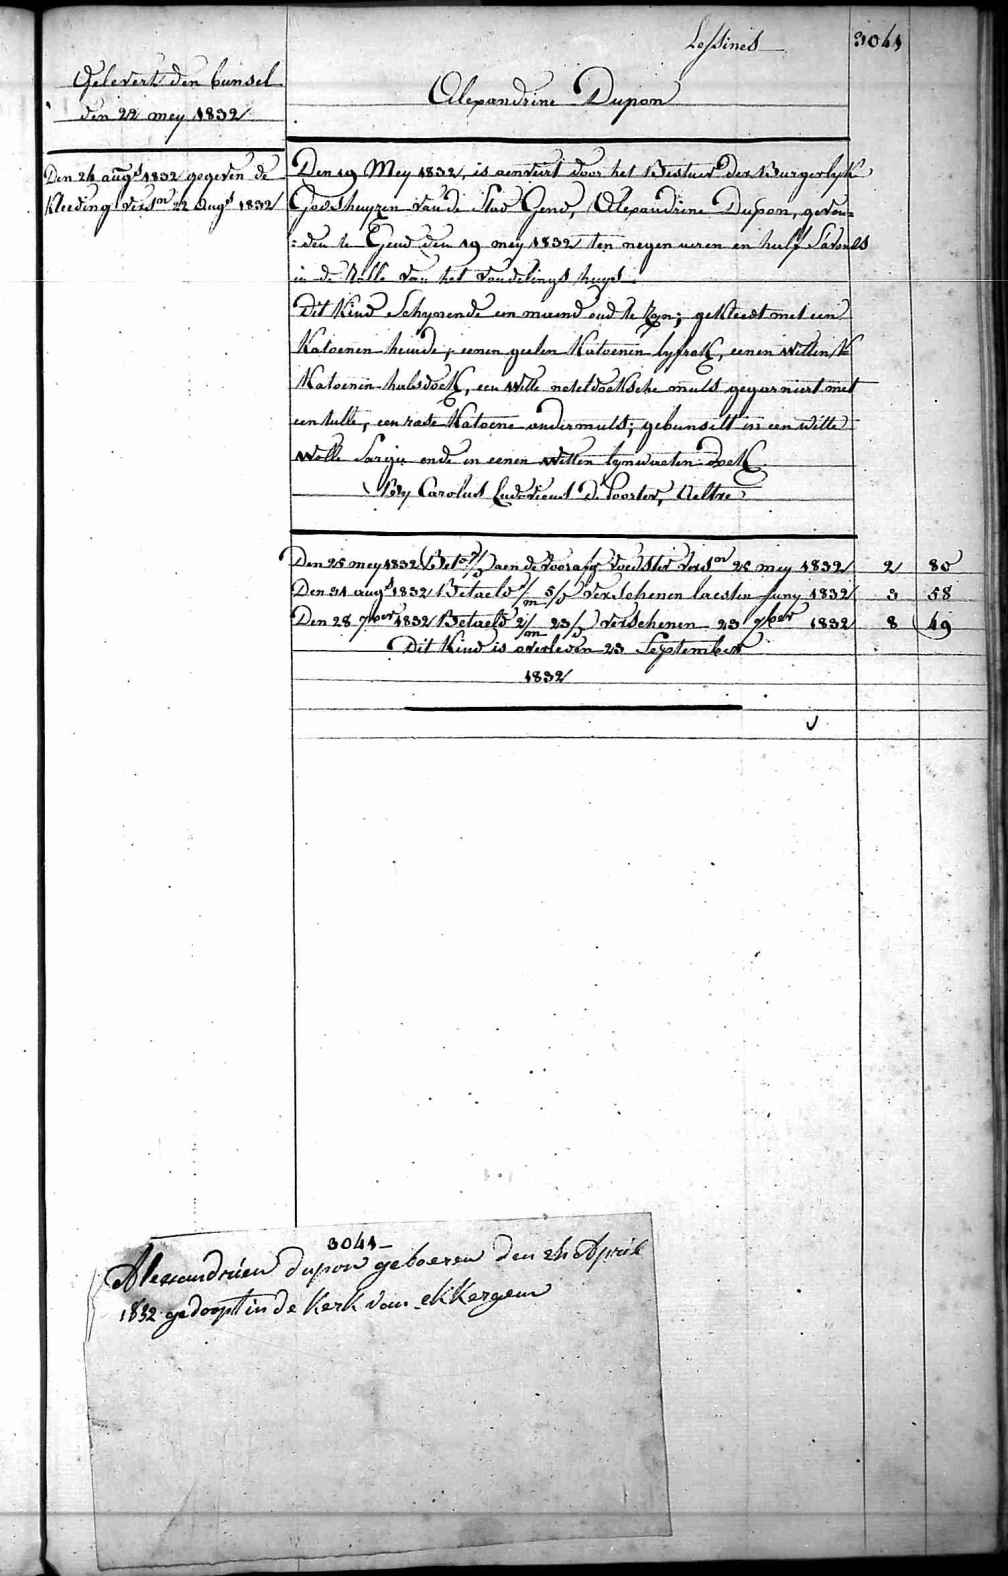 Lessines 3041
Gelevert den bunsel
den 22 mey 1832
Alexandrine Dupon
Den 24 augt 1832 gegeven de
Kleeding versn 22 augt 1832
Den 19 Mey 1832, is aenveirt door het Bestuer der Burgerlyke
Godshuyzen van de Stad Gend, Alexandrine Dupon, gevon=
:den te Gend den 19 mey 1832 ten negen uren en half s'avonds
in de Rolle van het vondelings huys.
Dit Kind Schynende een maend oud te zyn; gekleedt met een
Katoenen hemde, eenen geelen Katoenen lyfrok, eenen witten
Katoenen halsdoek, een witte neteldoeksche muts gegarniert met
een tulle, een roode Katoene ondermuts; gebunselt in een witte
wolle Sargie ende in eenen witten lynwaeten doek
By Carolus Ludovicus De Poorter, Aeltre
Den 25 mey 1832 Bet aen de voorafg voedster versn 25 mey 1832 2 80
Den 31 augt 1832 Betaeld /m 5/d verschenen laesten Juny 1832 3 58
Den 28 7ber 1832 Betaeld 2/m 23/d verschenen 23 7ber 1832 8 49
Dit Kind is overleden 23 September
1832
3041
Alexandrien dupon geboeren den 24 April
1832 gedoopt in de Kerk van ekkergem